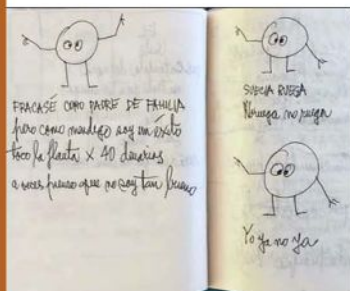 FRACASÉ COMO PADRE DE FAMILIA
pero como mendigo soy un éxito
toco la flauta x 40 denarios
a veces pienso que no soy tan bueno
SUECIA RUEGA
Noruega no ruega
Yo ya no ya